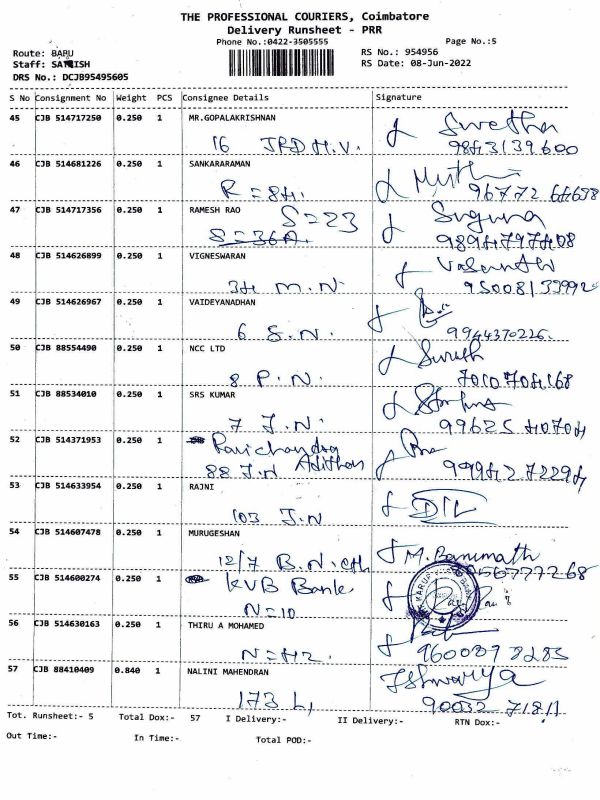 THE PROFESSIONAL COURIERS, Coimbatore
Delivery Runsheet - PRR
Phone No.:0422-3505555
Page No.:5
Route: BABU
Staff: SATHISH
DRS No.: DCJB95495605
RS No.: 954956
RS Date: 08-Jun-2022
S No Consignment No Weight PCS Consignee Details Signature
45 CJB 514717250 0.250 1 MR.GOPALAKRISHNAN Swetha
16 JRD H.V. 9843139600
46 CJB 514681226 0.250 1 SANKARARAMAN Muthu
R = 84. 96772 64638
47 CJB 514717356 0.250 1 RAMESH RAO S = 23 Suguna
S = 36A. 9894797408
48 CJB 514626899 0.250 1 VIGNESWARAN Vasanthi
34 M.N.
49 CJB 514626967 0.250 1 VAIDEYANADHAN
6 S.N. 9944370226.
50 CJB 88554490 0.250 1 NCC LTD Suresh
8 P.N. 7010704168
51 CJB 88534010 0.250 1 SRS KUMAR
7 J.N. 99625 40704
52 CJB 514371953 0.250 1 Ravichandra
88 J.N Adithan 99942 72294
53 CJB 514633954 0.250 1 RAJNI
103 J.N
54 CJB 514607478 0.250 1 MURUGESHAN M. Banumathi
12/7 B.N.
55 CJB 514600274 0.250 1 KVB Bank
N = 10
56 CJB 514630163 0.250 1 THIRU A MOHAMED
N = 42.
57 CJB 88410409 0.840 1 NALINI MAHENDRAN Ishwarya
173 L, 90032 71811
Tot. Runsheet:- 5 Total Dox:- 57 I Delivery:- II Delivery:- RTN Dox:-
Out Time:- In Time:- Total POD:-